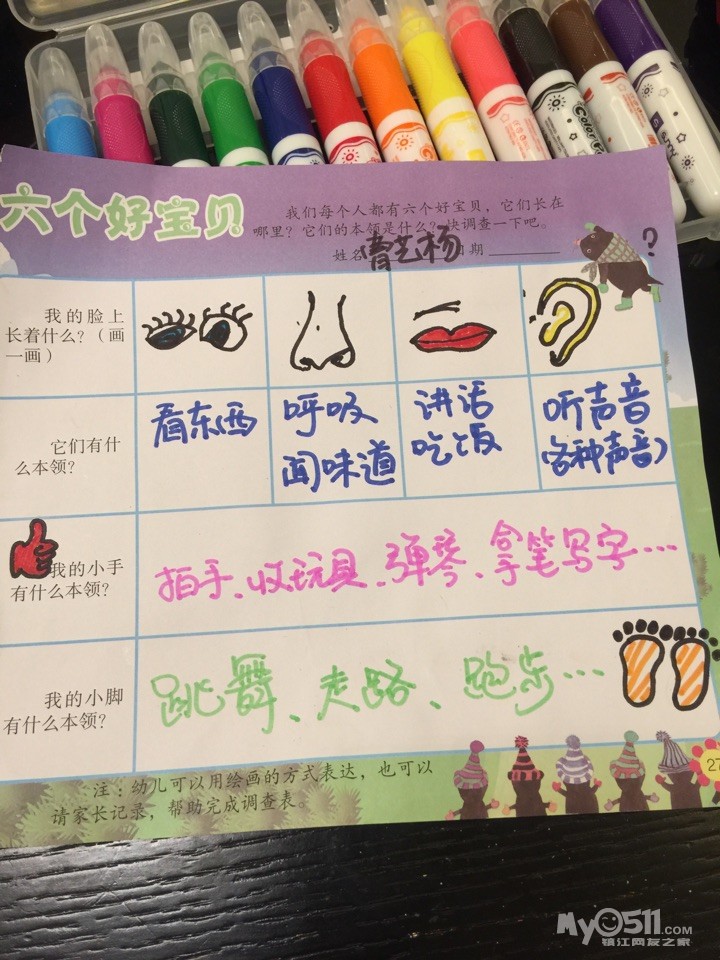 六个好宝贝
我们每个人都有六个好宝贝，它们长在
哪里？它们的本领是什么？快调查一下吧。
姓名 曹艺杨 日期
?
我的脸上
长着什么？（画
一画）
它们有什
么本领？
看东西
呼吸
闻味道
讲话
吃饭
听声音
（各种声音）
我的小手
有什么本领？
拍手、收玩具、弹琴、拿笔写字…
我的小脚
有什么本领？
跳舞、走路、跑步…
注：幼儿可以用绘画的方式表达，也可以
请家长记录，帮助完成调查表。
27
MY0511.COM
镇江网友之家